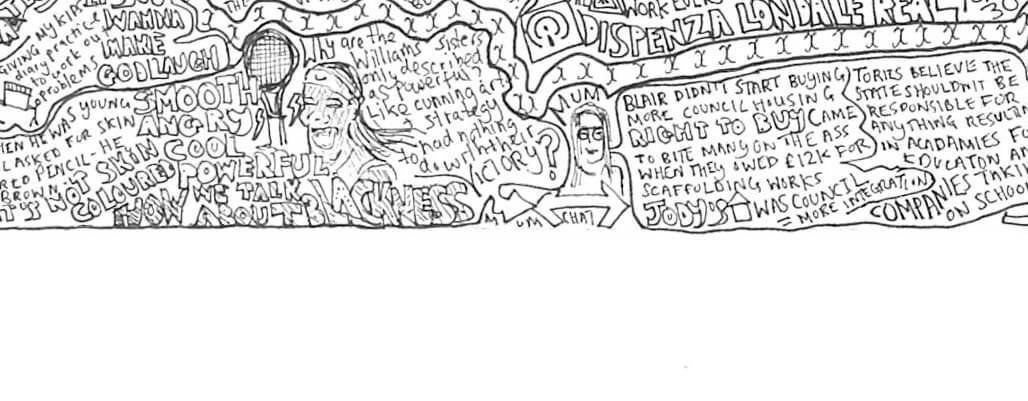 GIVING MY KIDS
diary practice
to work out
problems
WANNA
MAKE
GOD LAUGH
WORK EVER
DISPENZA LONDALE REAL
WHEN HE WAS YOUNG
ASKED FOR SKIN
RED PENCIL - HE
BROWN
IT'S NOT SKIN
COLOURED
SMOOTH
ANGRY
COOL
POWERFUL
HOW WE TALK
ABOUT BLACKNESS
Why are the
Williams Sisters
only described
as powerful?
Like cunning and
strategy
had nothing
to do with their
VICTORY?
MUM
CHAT
MUM
BLAIR DIDN'T START BUYING
MORE COUNCIL HOUSING
RIGHT TO BUY CAME
TO BITE MANY ON THE ASS
WHEN THEY OWED £12K FOR
SCAFFOLDING WORKS
JODY'S WAS COUNCIL
= MORE INTEGRATION
TORIES BELIEVE THE
STATE SHOULDN'T BE
RESPONSIBLE FOR
ANYTHING
IN ACADAMIES
EDUCATON
COMPANIES
ON SCHOO